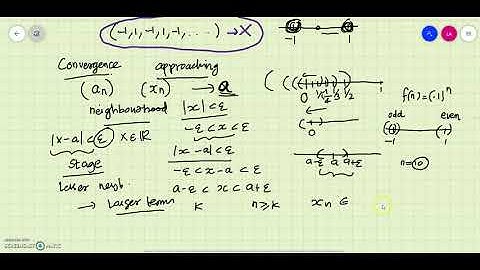 (-1,1,-1,1,-1, ....) → X
-1 1
Convergence approaching
(an) (xn) → a
neighbourhood |x| < ε
-ε < x < ε
|x-a| < ε x ∈ ℝ
|x-a| < ε
-ε < x-a < ε
a-ε < x < a+ε
stage
Larger terms K n ≥ K xn ∈
0 1/4 1/3 1/2 1
0
a-ε a a+ε
f(n) = (-1)^n
odd even
-1 1
n = 10